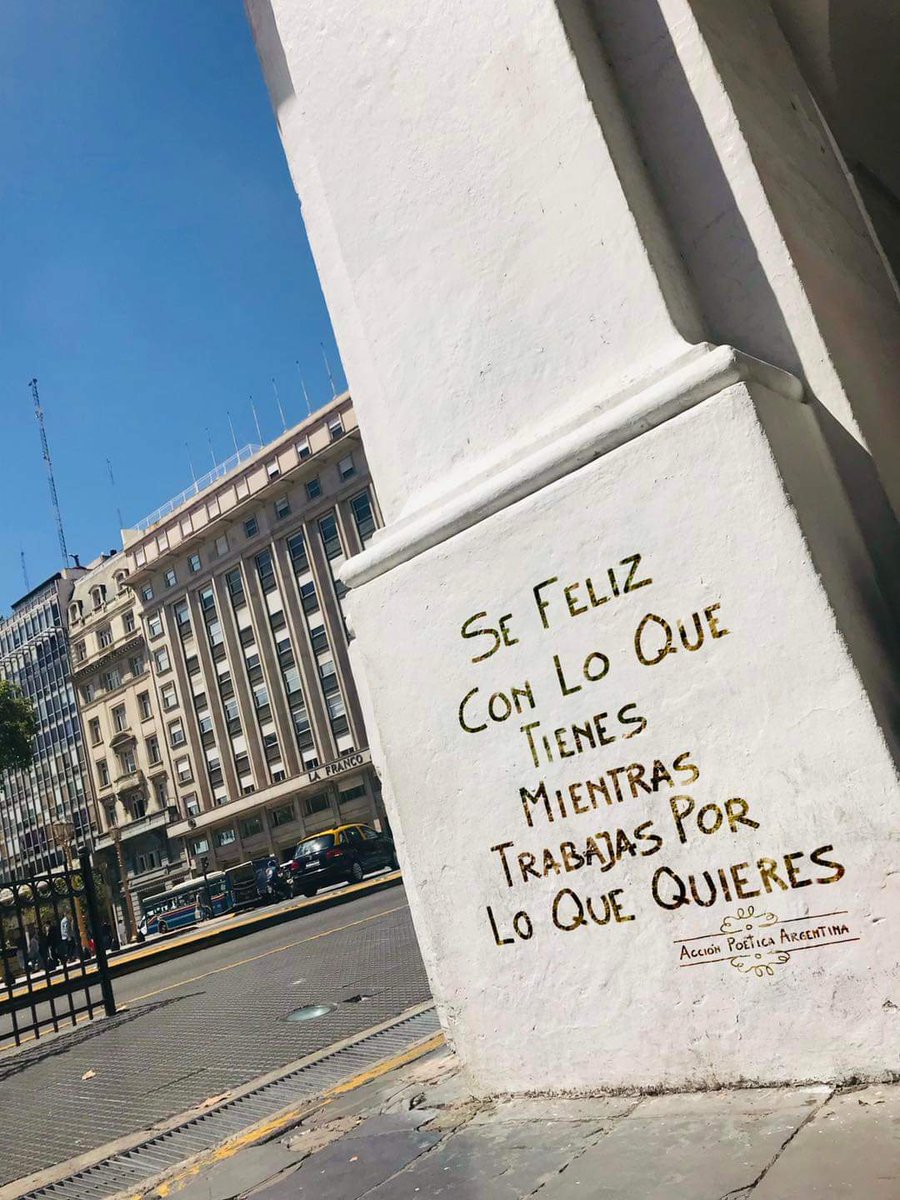 Se Feliz
Con Lo Que
Tienes
Mientras
Trabajas Por
Lo Que Quieres
Acción Poetica Argentina
LA FRANCO